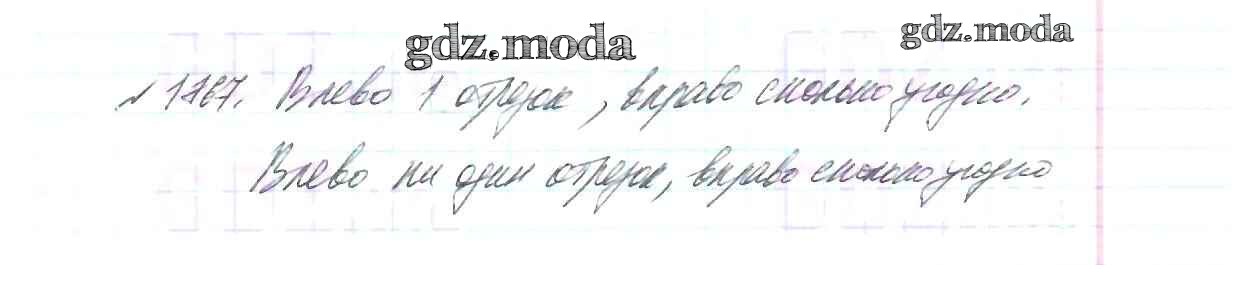 gdz.moda gdz.moda
№1767. Влево 1 отрезок, вправо сколько угодно.
Влево ни один отрезок, вправо сколько угодно